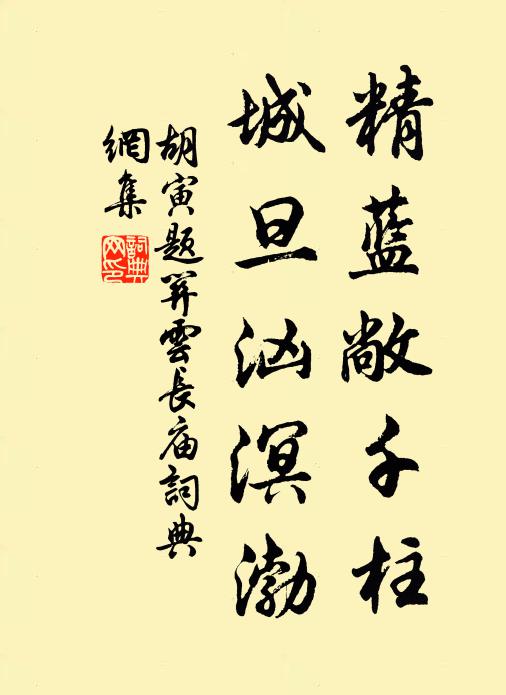 精藍敞千柱
城旦汹溟渤
胡寅题関雲長庙詞典
網集
詞典網印